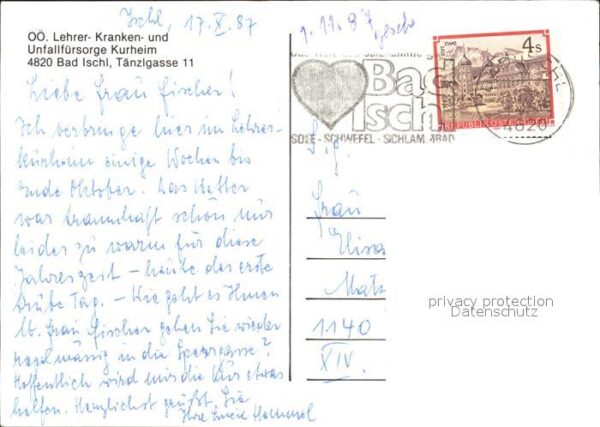 Ischl, 17.X.87
1.11.87
OÖ. Lehrer- Kranken- und
Unfallfürsorge Kurheim
4820 Bad Ischl, Tänzlgasse 11
Liebe Frau Fischer!
Ich verbringe hier im Lehrer-
kurheim einige Wochen bis
Ende Oktober. Das Wetter
war traumhaft schön nur
leider zu warm für diese
Jahreszeit – heute der erste
trübe Tag. – Wie geht es Ihnen
lb. Frau Fischer gehen Sie wieder
regelmässig in die Sperrgasse?
Hoffentlich wird mir die Kur etwas
helfen. Herzlichst grüßt Sie
Ihre Lucie Hammel
Bad
Ischl
SOLE - SCHWEFEL - SCHLAMMBAD
4820
4 S
STIFT STAMS
REPUBLIK ÖSTERREICH
Frau
Elisa
1140
XIV.
privacy protection
Datenschutz